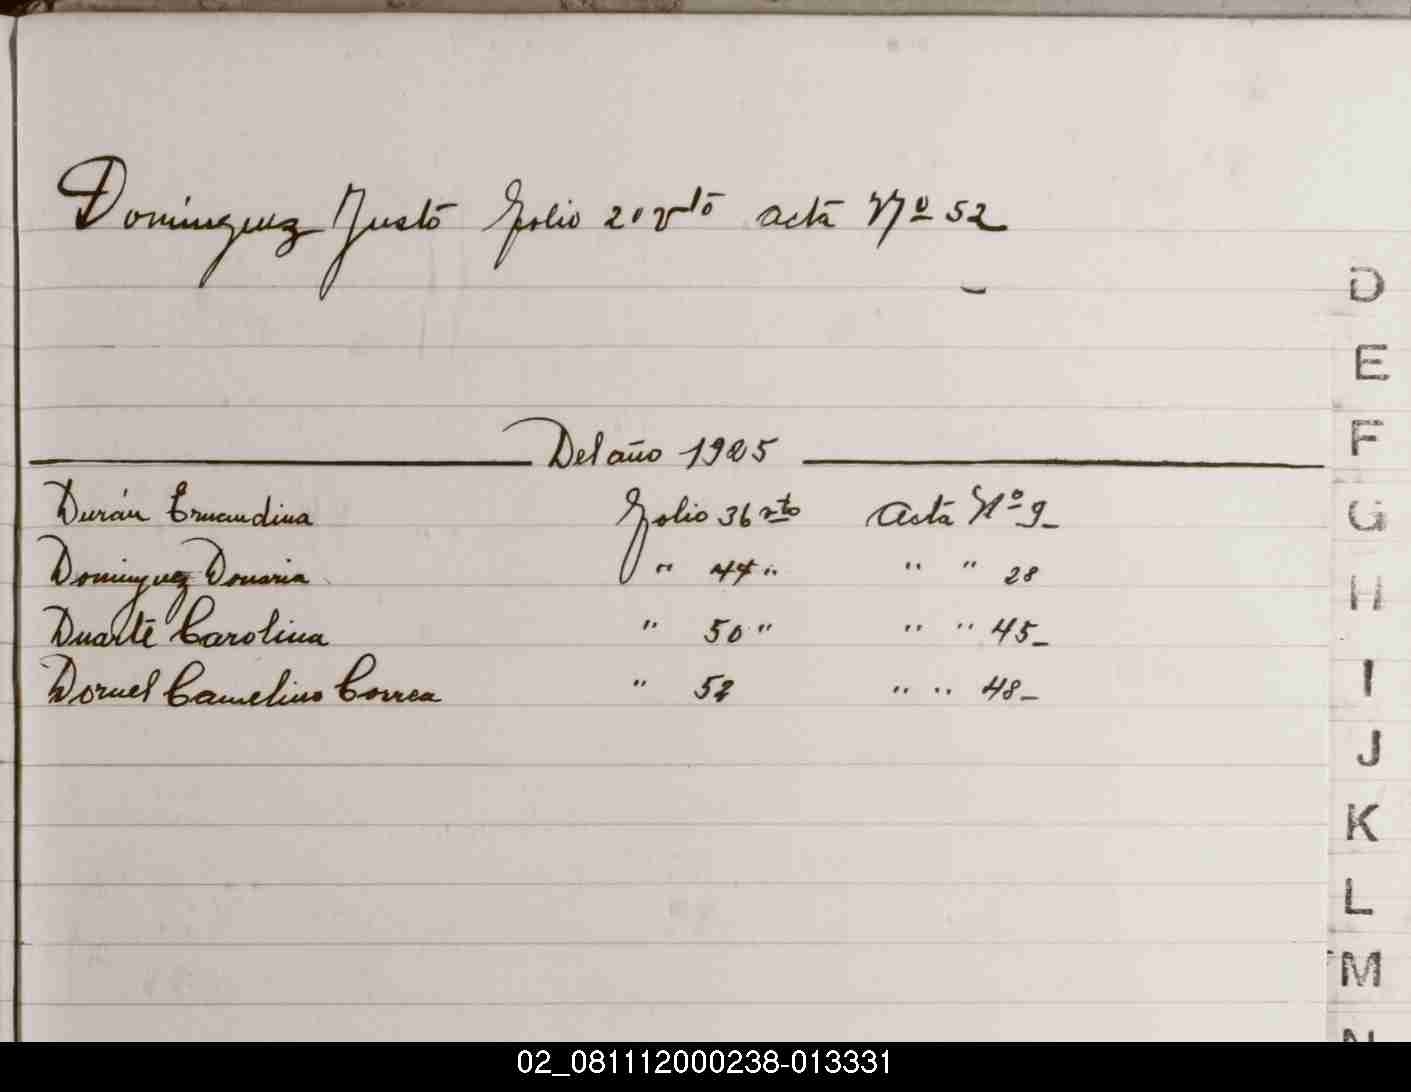 Domínguez Justo folio 20 vto acta Nº 52
Del año 1925
Durán Ernandina Folio 36 vto Acta Nº 9
Dominguez Donaria " 44 " " " 28
Duarte Carolina " 50 " " " 45
Dornel Camelino Correa " 52 " " 48
D
E
F
G
H
I
J
K
L
M
N
02_081112000238-013331